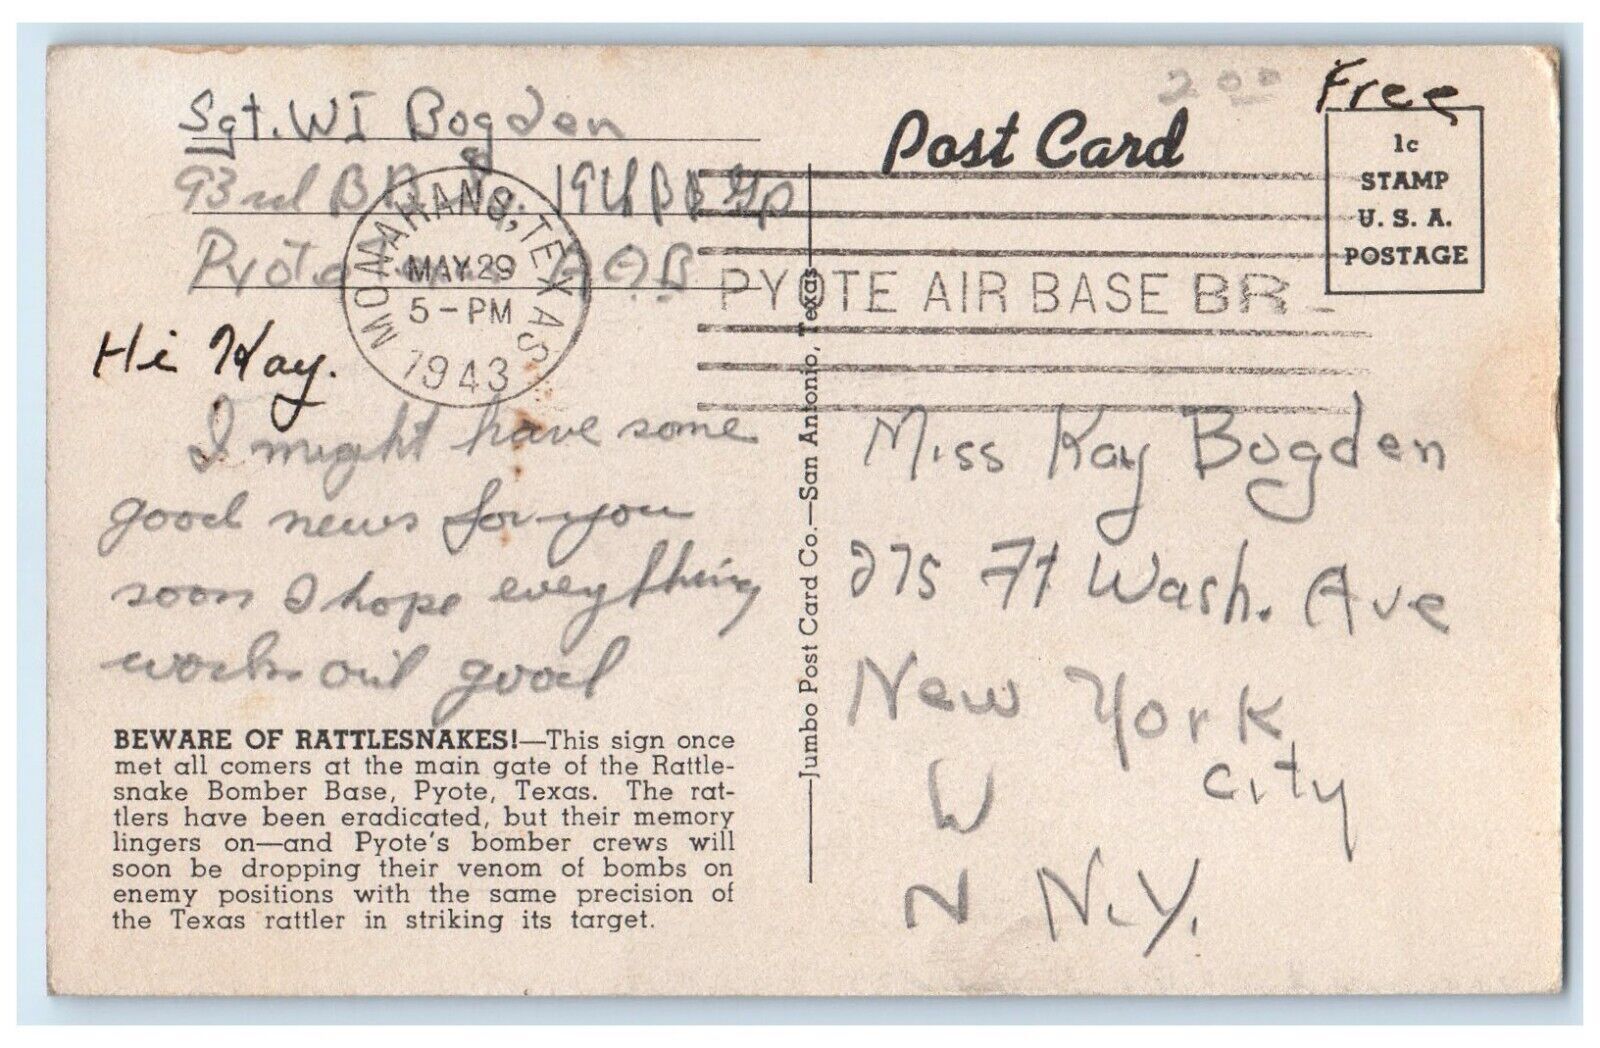 Sgt. WI Bogden
93rd B 19th BB Gp
Pyote A.A.B
MONAHANS, TEXAS
MAY 29
5-PM
1943
PYOTE AIR BASE BR
Hi Kay.
I might have some
good news for you
soon I hope everything
works out good
BEWARE OF RATTLESNAKES!—This sign once
met all comers at the main gate of the Rattle-
snake Bomber Base, Pyote, Texas. The rat-
tlers have been eradicated, but their memory
lingers on—and Pyote's bomber crews will
soon be dropping their venom of bombs on
enemy positions with the same precision of
the Texas rattler in striking its target.
Jumbo Post Card Co.—San Antonio, Texas
Post Card
2 00
Free
1c
STAMP
U. S. A.
POSTAGE
Miss Kay Bogden
275 Ft Wash. Ave
New York
City
W
N N.Y.